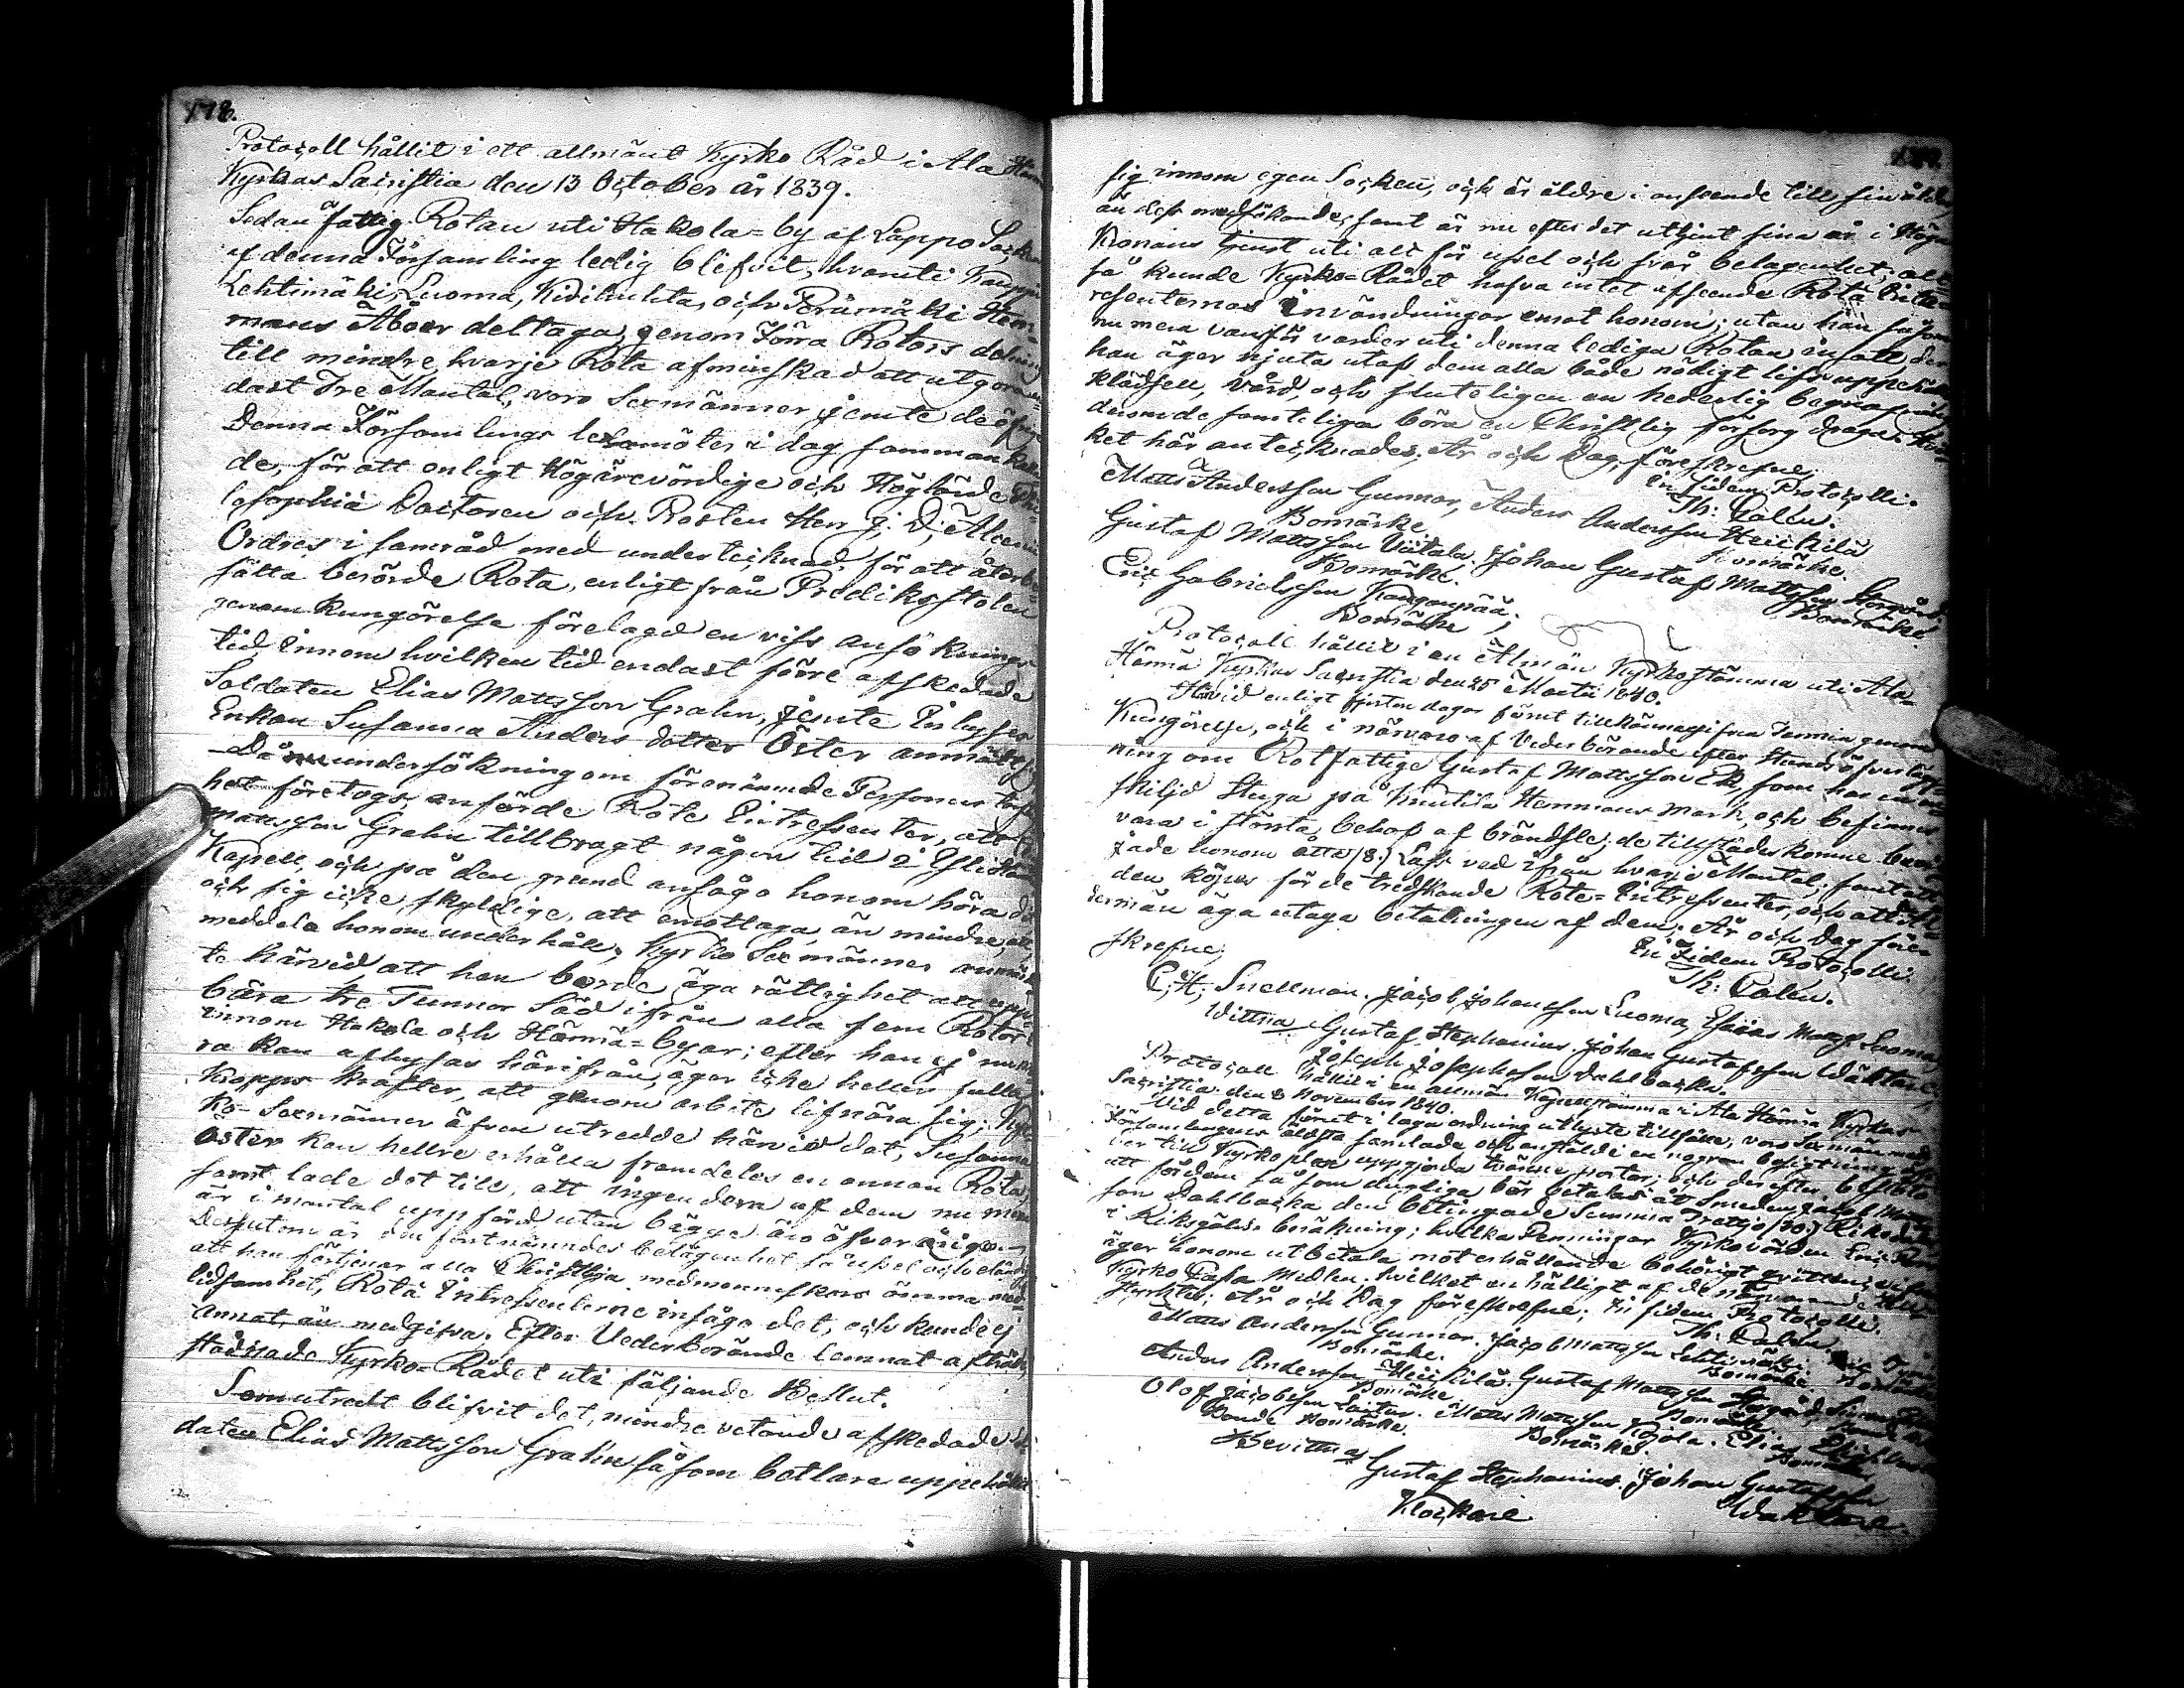 178.
Protocoll hållit i ett allmänt Kyrko Råd i Ala Härmä
Kyrkas Sacristia den 13 October år 1839.
Sedan fattig Rotan uti Hakola=by af Lappo Socken
af denna Församling ledig blefvit, hvaruti Kauppi
Lehtimäki, Luoma, Kidikuhta, och Perämäki Hem=
mans Åboer deltaga, genom Förra Rotors delning
till mindre, hvarje Rota afminskad att utgöra en=
dast Tre Mantal, voro Sexmänner jemte de öfrige
Denna Församlings ledamöter i dag sammankalla
de, för att enligt Högärevördige och Höglärde Phi=
losophiæ Doctoren och Prosten Herr
Ordres i samråd med undertecknad för att återbe
sätta berörde Rota, enligt från Predikstolen
genom kungörelse förelagd en viss ansöknings
tid, innom hvilken tid endast förre afskedade
Soldaten Elias Mattsson Grahn, jemte Inhyses
Enkan Susanna Anders dotter Öster anmält sig
Då nu undersökning om förenämnde Personers
het företogs, anförde Rote Intressenter, att
Mattsson Grahn tillbragt någon tid i Ylistaro
Kapell, och på den grund ansågo honom höra dit
och sig icke skyldige, att emottaga, än mindre, att
meddela honom underhåll; Kyrko Sexmänner anmärk
te härvid att han borde äga rättighet att upp
bära tre Tunnor Säd ifrån alla fem Rotor
innom Hakola och Härmä=byar; efter han ej mera
ra kan afhysas härifrån, äger icke heller fulla
Kropps krafter, att genom arbete lifnära sig; Kyr
ko-Sexmänner äfven utredde härvid det, Susanna
Öster kan hellre erhålla framdeles en annan Rota
samt lade det till, att ingendera af dem nu mera
är i mantal uppförd utan bägge äro öfveråriga
Dessutom är den förstnämndes belägenhet så usel och elände
att han förtjenar alla Christliga medmenniskors ömma med=
lidsamhet, Rota Intressenterne insågo det, och kunde ej
annat, än medgifva. Efter Vederbörande lemnat afträde
stadnade Kyrko=Rådet uti följande Beslut.
Som utredt blifvit det, mindre vetande afskedade Sol
daten Elias Mattsson Grahn såsom botlare uppehållit
179.
sig innom egen Socken, och är äldre i anseende till sin ålder
än dess medsökande, samt är nu efter det uttjent sina år i Höga
Kronans tjenst uti allt för usel och svår belägenhet;
så kunde Kyrko=Rådet hafva intet afseende Rotä Inte=
ressenternas invändningar emot honom; utan han såsom
nu mera vanför varder uti denna lediga Rotan insatt, der
han äger njuta utaf dem alla både nödigt lifsuppehälle
klädsell, vård, och sluteligen en hederlig begrafning
desom de samteligen böra en Christlig försorg draga. Hvil
ket här antecknades; År och Dag, föreskrefne;
In fidem Protocolli.
Th: Palén.
Matts Andersson Gunnar, Anders Andersson Heickilä
Bomärke Bomärke.
Gustaf Mattsson Viitala, Johan Gustaf Mattsson Storgård
Bomärke. Bomärke
Eric Gabrielsson Kangonpää;
Bomärke
Protocoll hållit i en Allmän Kyrkostämma uti Ala=
Härmä Kyrkas Sacristia den 25 Martii 1840.
Härvid enligt fjorton dagar förut tillkännagifven Termin genom
Kungörelse, och i närvaro af Vederbörande efter Hemsöfverlägg
ning om Rotfattige Gustaf Mattsson Ek, som har en en
skiljd Stuga på Knutila Hemmans mark, och befinnes
vara i största behof af brändsle; de tillstädes komne bevil
jade honom åtta /8./ Lass ved ifrån hvarje Mantal; samt att
den köpes för de tredskande Rote=Intressenter, och att Ål
dermän äga uttaga betalningen af dem; År och Dag före
skrefne; In fidem Protocolli.
Th: Palén.
C: H; Snellman. Jacob Johansson Luoma, Esaias Matts. Luoma,
Wittna Gustaf Stephanius. Johan Gustafsson Wäktare
Joseph Josephsson Dahlbacka.
Protocoll hållit i en allmän Kapellstämma i Ala Härmä Kyrkas
Sacristia den 8 November 1840.
Vid detta förut i laga ordning utlyste tillfälle, voro Sexmän med
Församlingens äldsta samlade, och anställde en nogran besigtning
till Kyrko plan uppgjorda tvänne portar, och derefter beslöto
att för dem så som dugliga bör betalas åt Smeden Jacob Matts
son Dahlbacka den betingade Summa Trettjo /30/ Riksdaler
i Riksgälds beräkning; hvilka Penningar Kyrkovärden Eric
äger honom utbetala mot erhållande behörigt qvittens
Kyrko Cassa Medlen. hvilket enhälligt af de närvarande
styrktes; År och Dag föreskrefne; In fidem Protocolli.
Th: Palén.
Matts Andersson Gunnar. Jacob Mattsson Lehtimäki.
Bomärke. Bomärke. Bomärke
Anders Andersson Heickilä. Gustaf Mattsson Storgård,
Bomärke Bomärke
Olof Jacobsson Saitar. Matts Mattsson Kojola. Elias
Bonde Bomärke. Bomärke. Bomärke
Bevittna
Gustaf Stephanius. Johan Gustafsson
Klockare Wäktare.